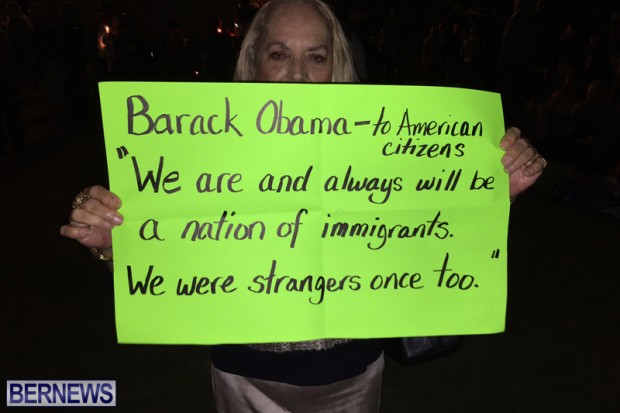 Barack Obama - to American
citizens
"We are and always will be
a nation of immigrants.
We were strangers once too."
BERNEWS